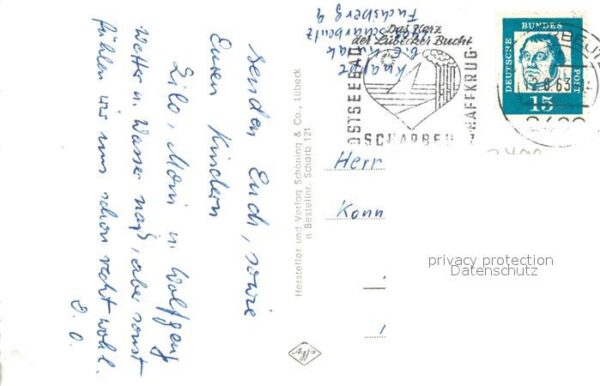 senden Euch, sowie
Euren Kindern
Lilo, Moni u. Wolfgang
Wetter u. Wasser naß, aber sonst
fühlen wir uns schon recht wohl.
D. O.
Hersteller und Verlag Schöning & Co., Lübeck
n Bestellnr. Scharb 121
Agfa
Knaak
Scharbeutz
Fuchsberg 9
Das Herz
der Lübecker Bucht
OSTSEEBAD
SCHARBEU
HAFFKRUG
63
DEUTSCHE
BUNDES
POST
15
Herr
Konn
privacy protection
Datenschutz